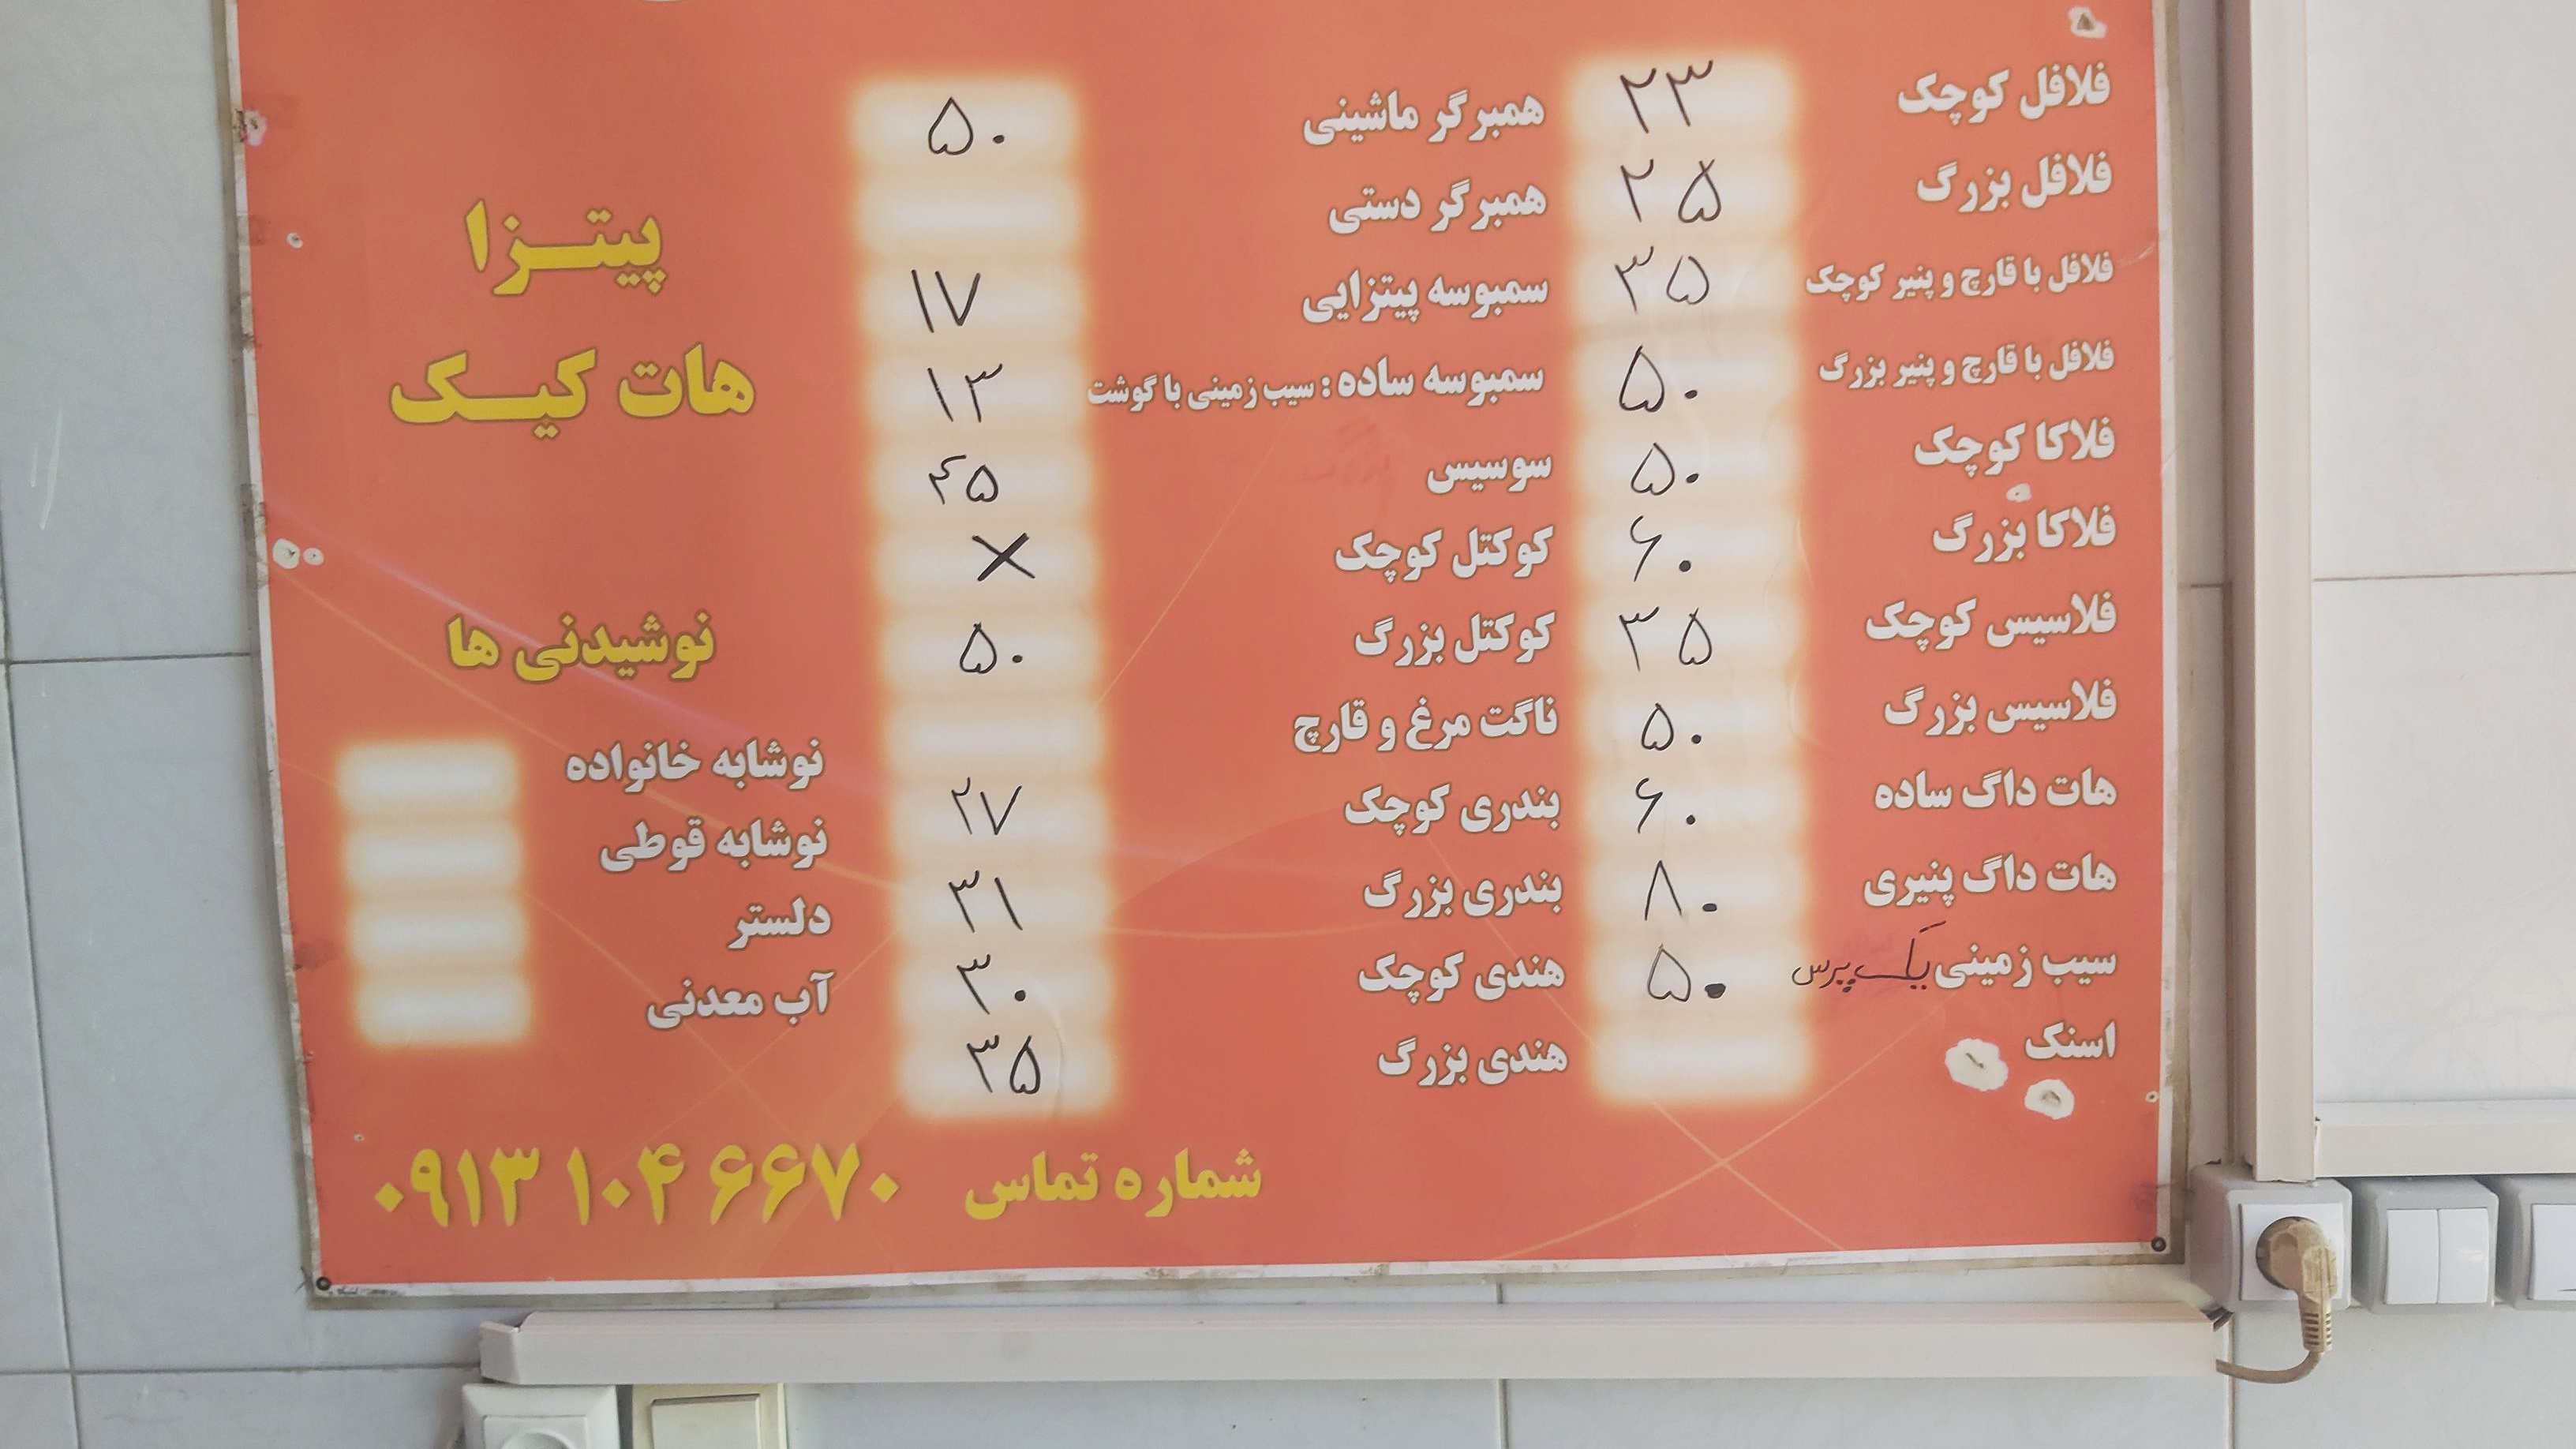 فلافل کوچک ۲۳
فلافل بزرگ ۲۵
فلافل با قارچ و پنیر کوچک ۳۵
فلافل با قارچ و پنیر بزرگ ۵۰
فلاکا کوچک ۵۰
فلاکا بزرگ ۶۰
فلاسیس کوچک ۳۵
فلاسیس بزرگ ۵۰
هات داگ ساده ۶۰
هات داگ پنیری ۸۰
سیب زمینی یک پرس ۵۰
اسنک
همبرگر ماشینی ۵۰
همبرگر دستی
سمبوسه پیتزایی ۱۷
سمبوسه ساده : سیب زمینی با گوشت ۱۳
سوسیس ۴۵
کوکتل کوچک ×
کوکتل بزرگ ۵۰
ناگت مرغ و قارچ
بندری کوچک ۲۷
بندری بزرگ ۳۱
هندی کوچک ۳۰
هندی بزرگ ۳۵
پیتـزا
هات کیـک
نوشیدنی ها
نوشابه خانواده
نوشابه قوطی
دلستر
آب معدنی
شماره تماس ۰۹۱۳ ۱۰۴ ۶۶۷۰